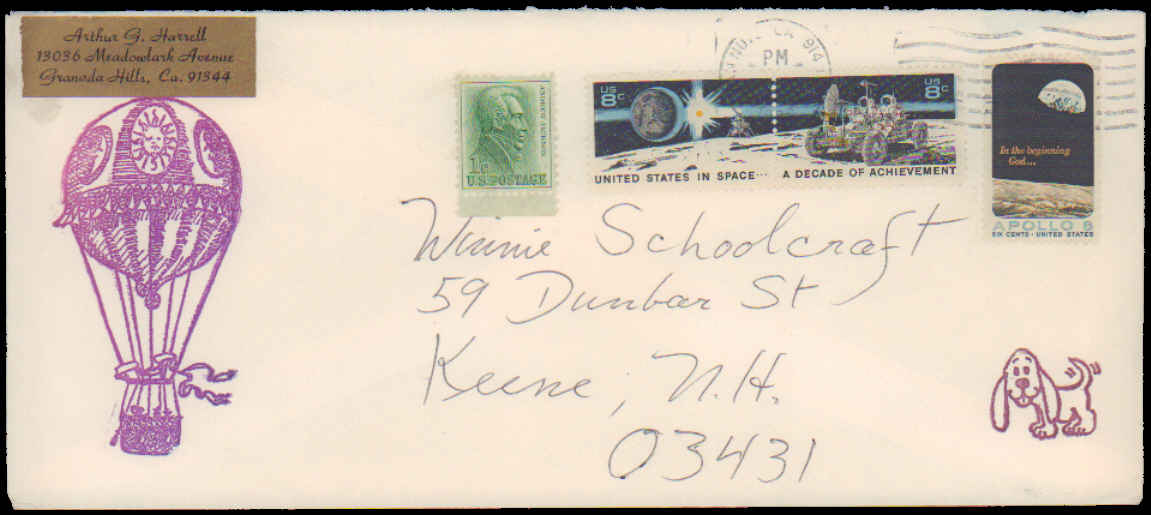 Arthur G. Harrell
13036 Meadowlark Avenue
Granada Hills, Ca. 91344
CA 914
PM
1¢
U.S. POSTAGE
ANDREW JACKSON
US
8c
US
8c
UNITED STATES IN SPACE... A DECADE OF ACHIEVEMENT
In the beginning
God...
APOLLO 8
SIX CENTS · UNITED STATES
Winnie Schoolcraft
59 Dunbar St
Keene, N.H.
03431